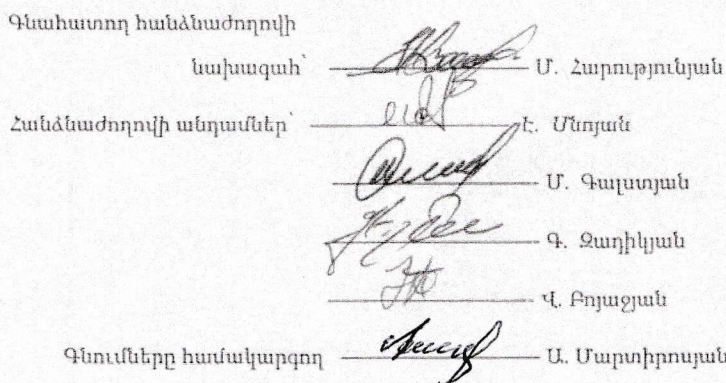 Գնահատող հանձնաժողովի
նախագահ՝ Մ. Հարությունյան
Հանձնաժողովի անդամներ՝ Է. Մնոյան
Մ. Գալստյան
Գ. Զադիկյան
Վ. Բոյաջյան
Գնումները համակարգող Ա. Մարտիրոսյան